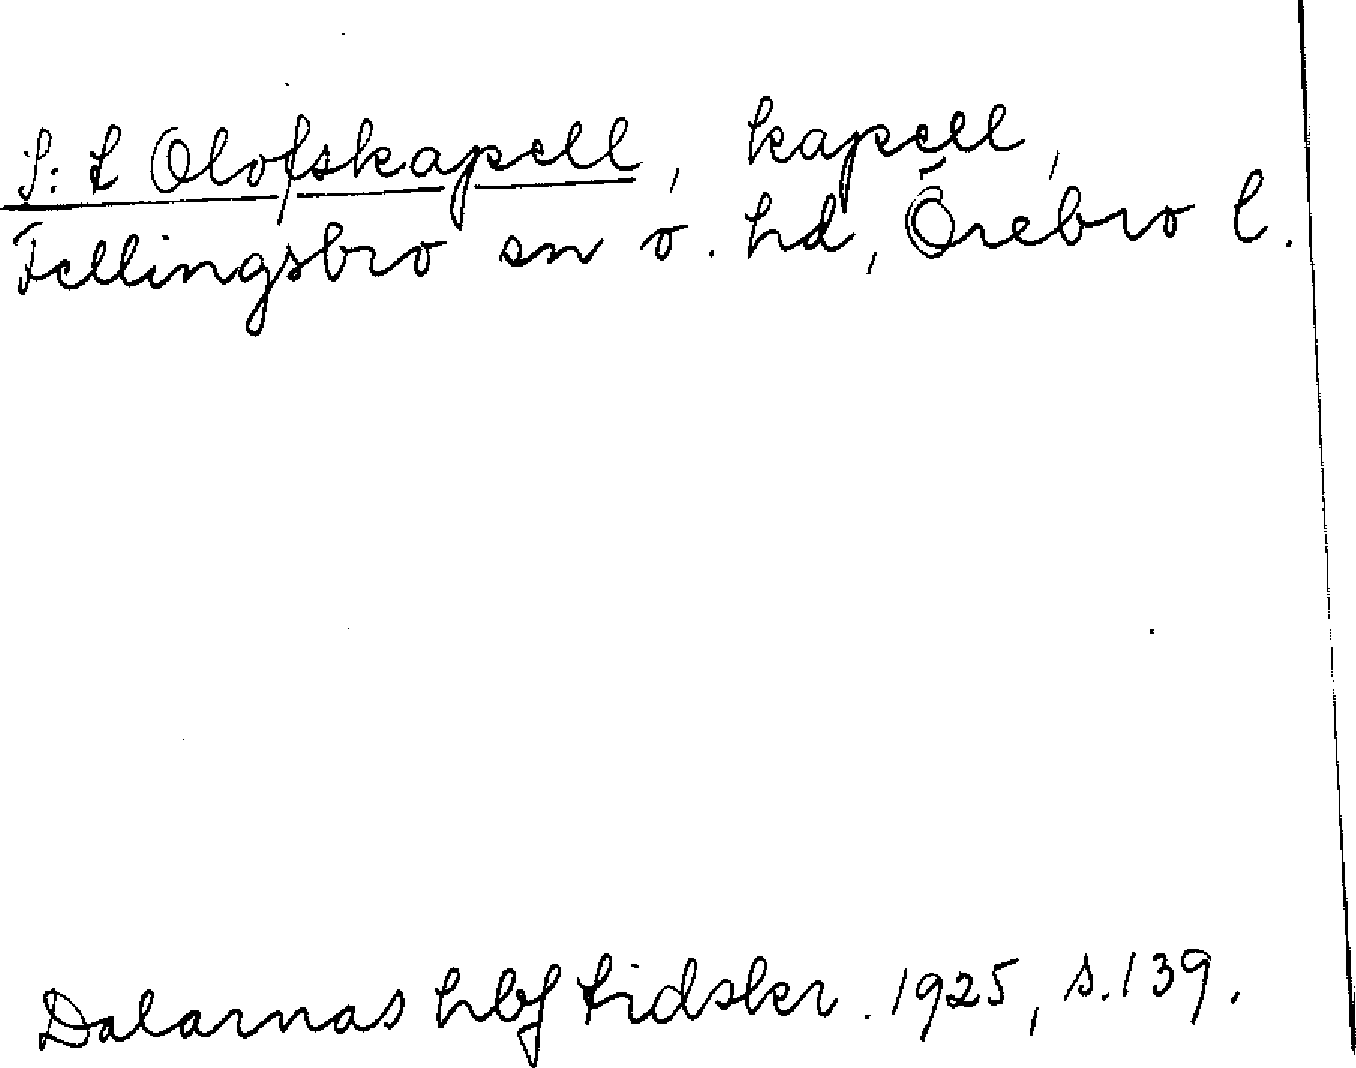 S:t Olofskapell, kapell,
Fellingsbro sn o. hd, Örebro l.
Dalarnas hbf tidskr. 1925, s. 139.